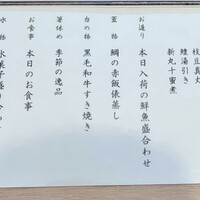 枝豆真丈
鱧湯引き
新丸十蜜煮
お造り
本日入荷の鮮魚盛合わせ
蓋物
鯛の赤飯俵蒸し
台の物
黒毛和牛すき焼き
箸休め
季節の逸品
お食事
本日のお食事
水物
水菓子盛り合わ